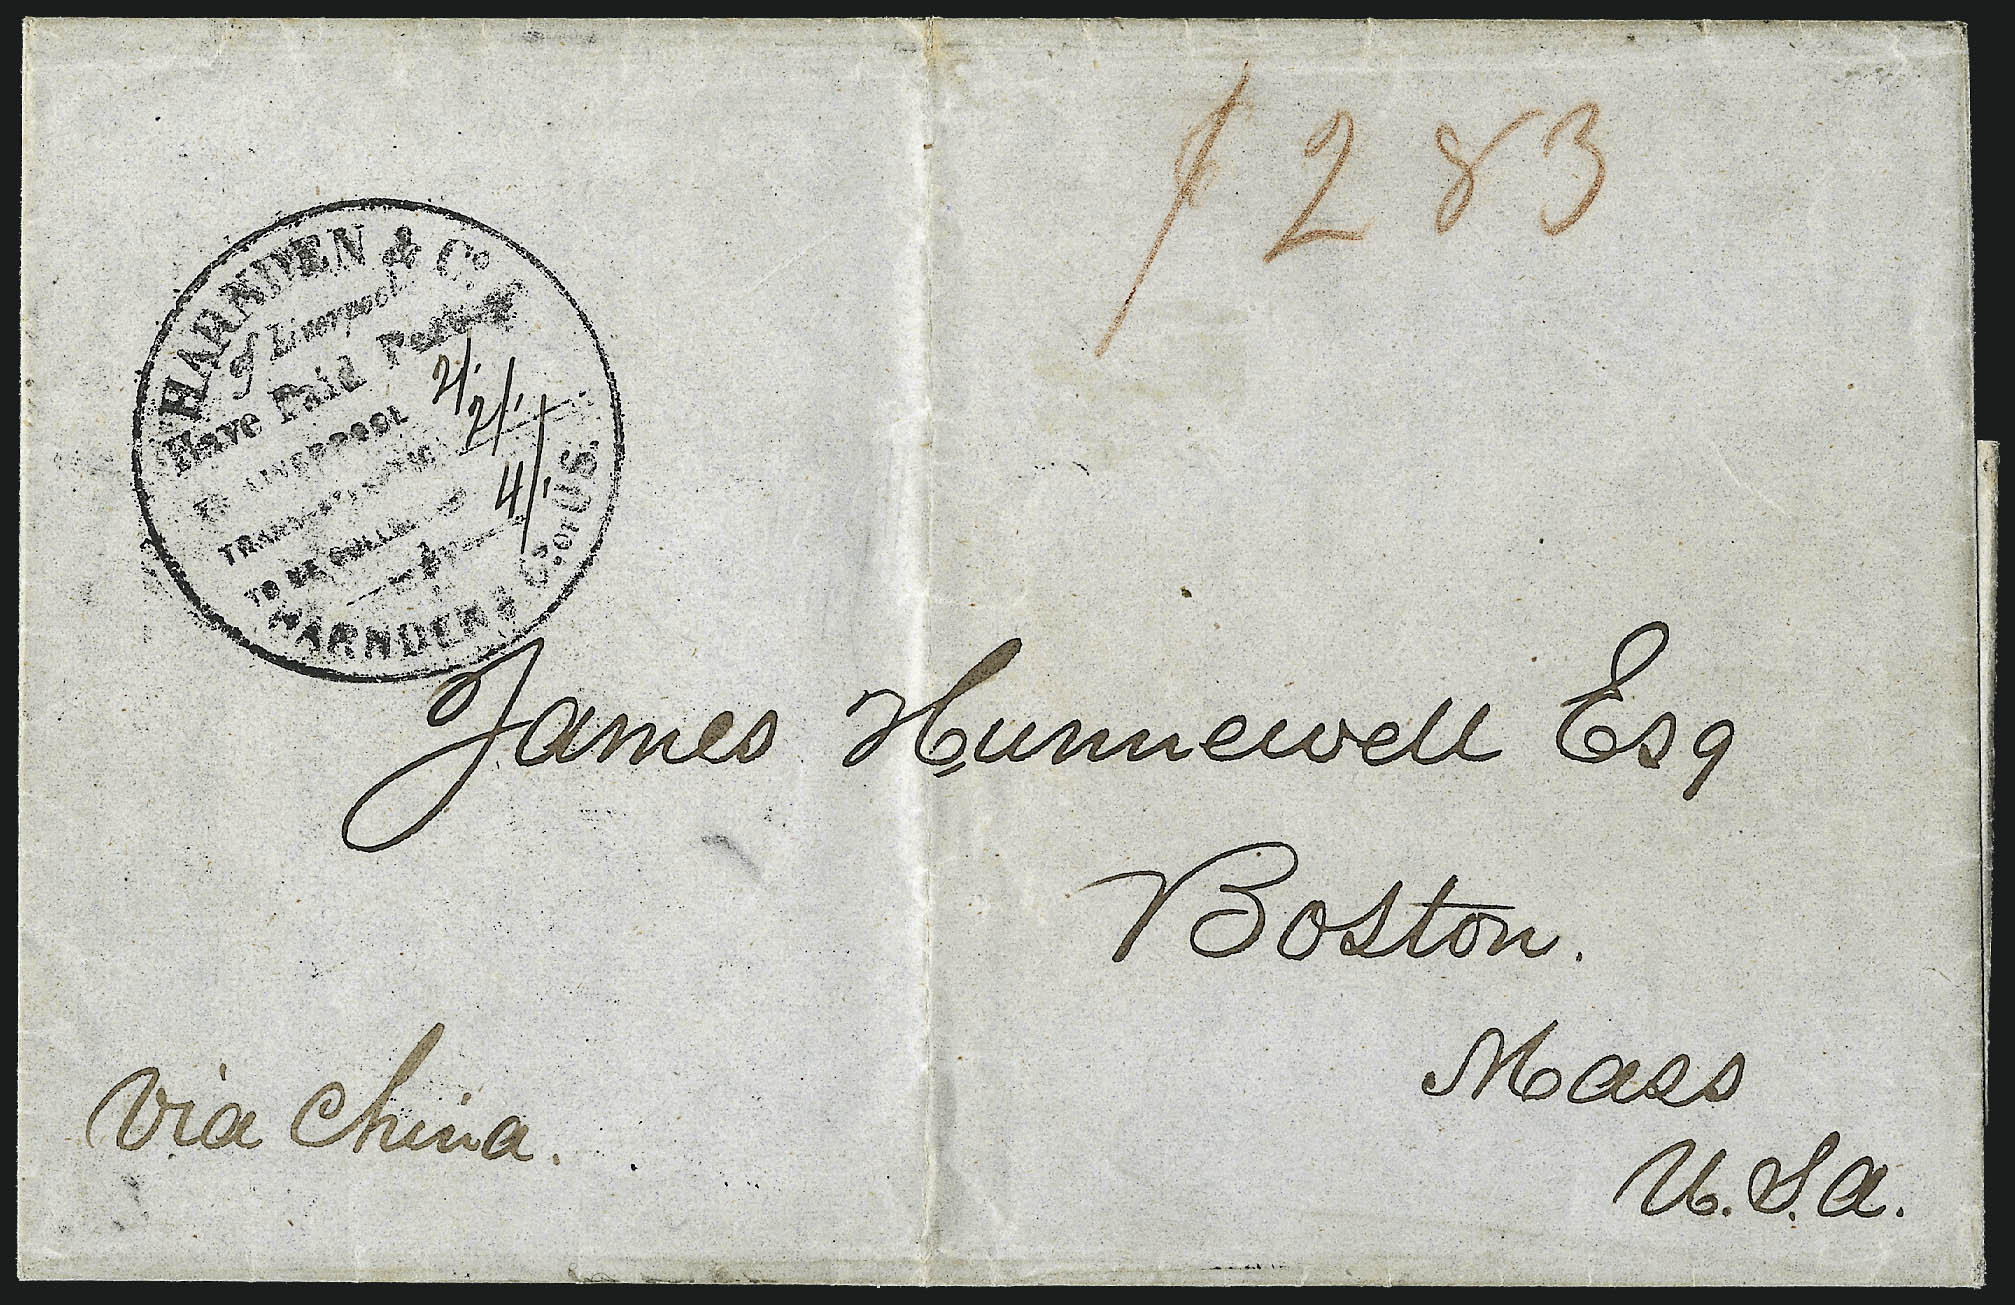 / 2 8 3
HARNDEN & Co.
of Liverpool
Have Paid Postage
TO LIVERPOOL
2/1
TRANS-ATLANTIC
2/1
TO BE COLLECTED
4/1
BY
HARNDEN & Co. OF U.S.
James Hunnewell Esq
Boston.
Mass
U.S.A.
Via China.